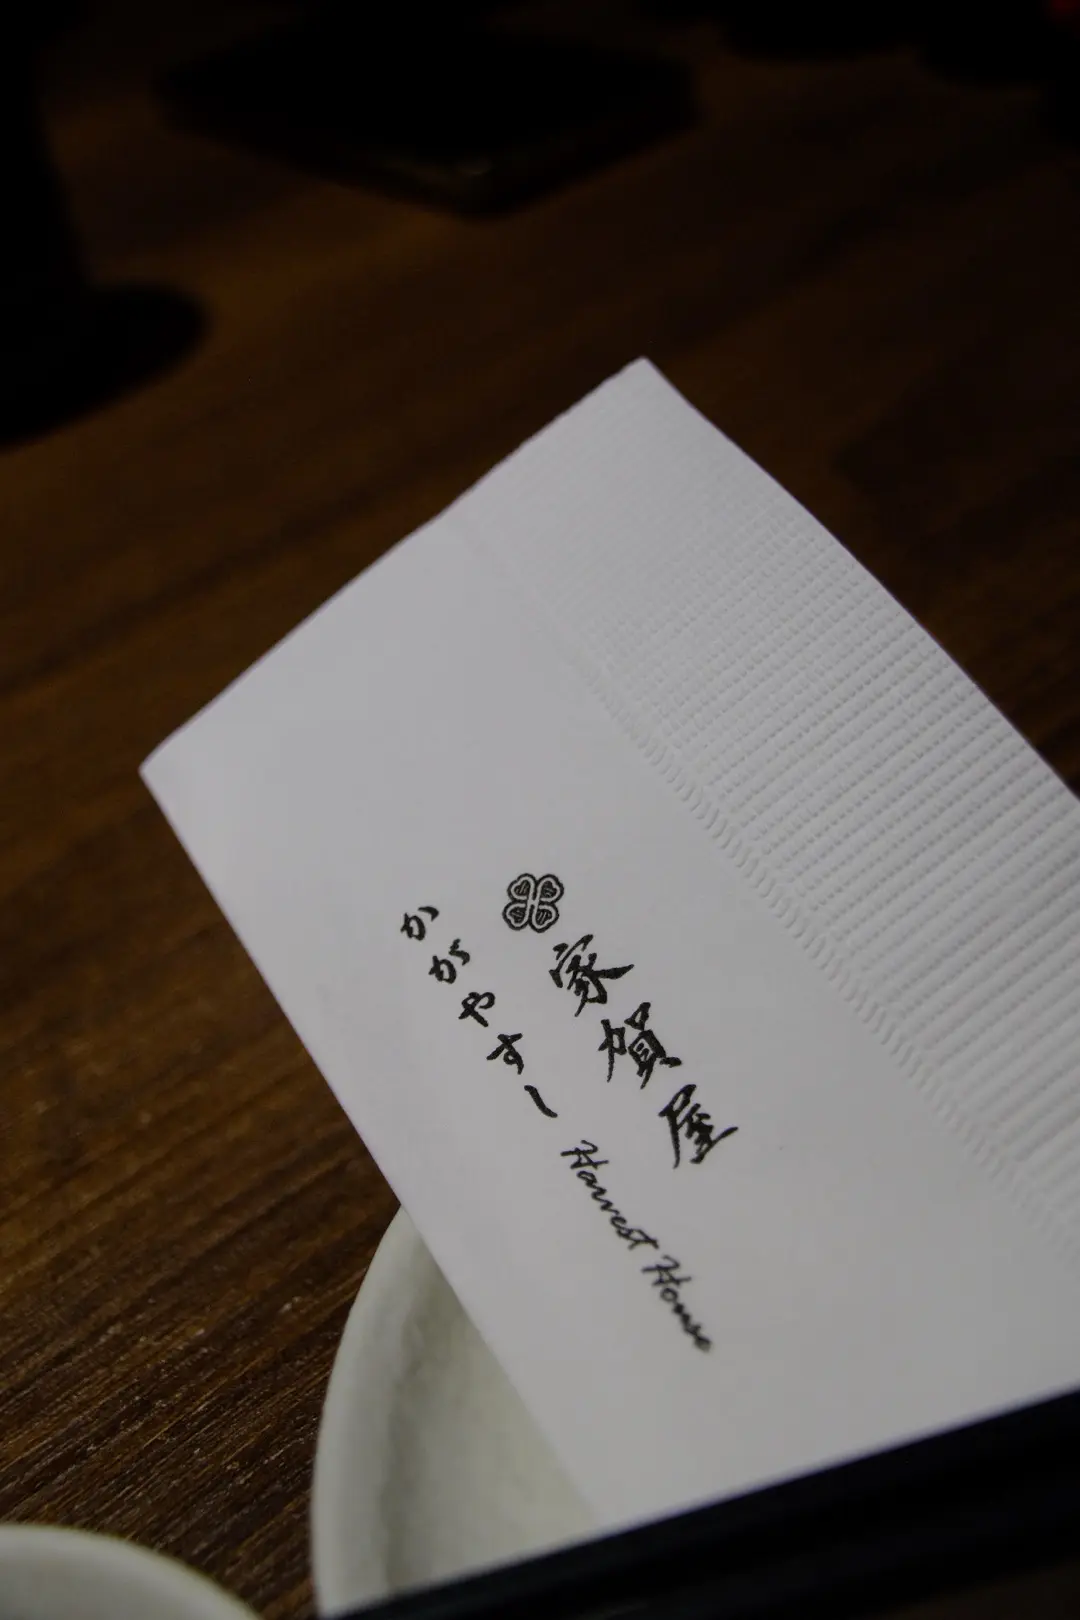 家賀屋
かがやすし
Harvest House